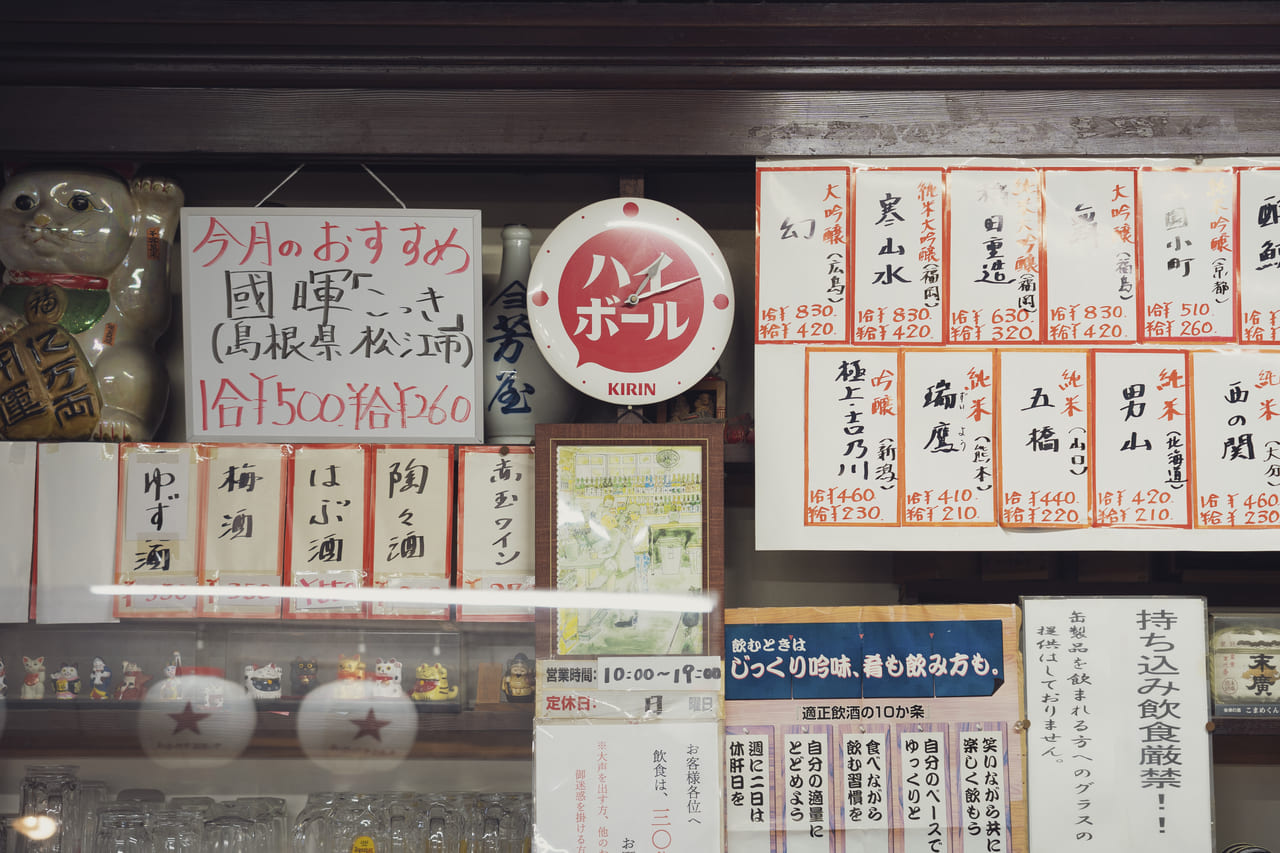 今月のおすすめ
國暉「こっき」
(島根県松江市)
1合¥500. 半合¥260
ハイ
ボール
KIRIN
金芳屋
福
大吟醸
幻(広島)
合¥830.
¥420.
純米大吟醸
寒山水(福岡)
合¥830.
¥420.
田重造(福岡)
合¥630.
¥320.
大吟醸
(福島)
合¥830.
¥420.
吟醸
小町(京都)
合¥510.
¥260.
吟醸
極上・吉乃川(新潟)
合¥460.
¥230.
純米
瑞鷹(熊本)
ずいよう
合¥410.
¥210.
純米
五橋(山口)
合¥440.
¥220.
純米
男山(北海道)
合¥420.
¥210.
純米
西の関(大分)
合¥460
¥230
ゆず酒
梅酒
はぶ酒
陶々酒
赤玉ワイン
営業時間: 10:00〜19:00
定休日: 月 曜日
お客様各位へ
飲食は、
※大声を出す方、他の
御迷惑を掛ける方
飲むときは
じっくり吟味、肴も飲み方も。
適正飲酒の10か条
笑いながら共に
楽しく飲もう
自分のペースで
ゆっくりと
食べながら
飲む習慣を
自分の適量に
とどめよう
週に二日は
休肝日を
持ち込み飲食厳禁!!
缶製品を飲まれる方へのグラスの
提供はしておりません。
末廣
こまめくん